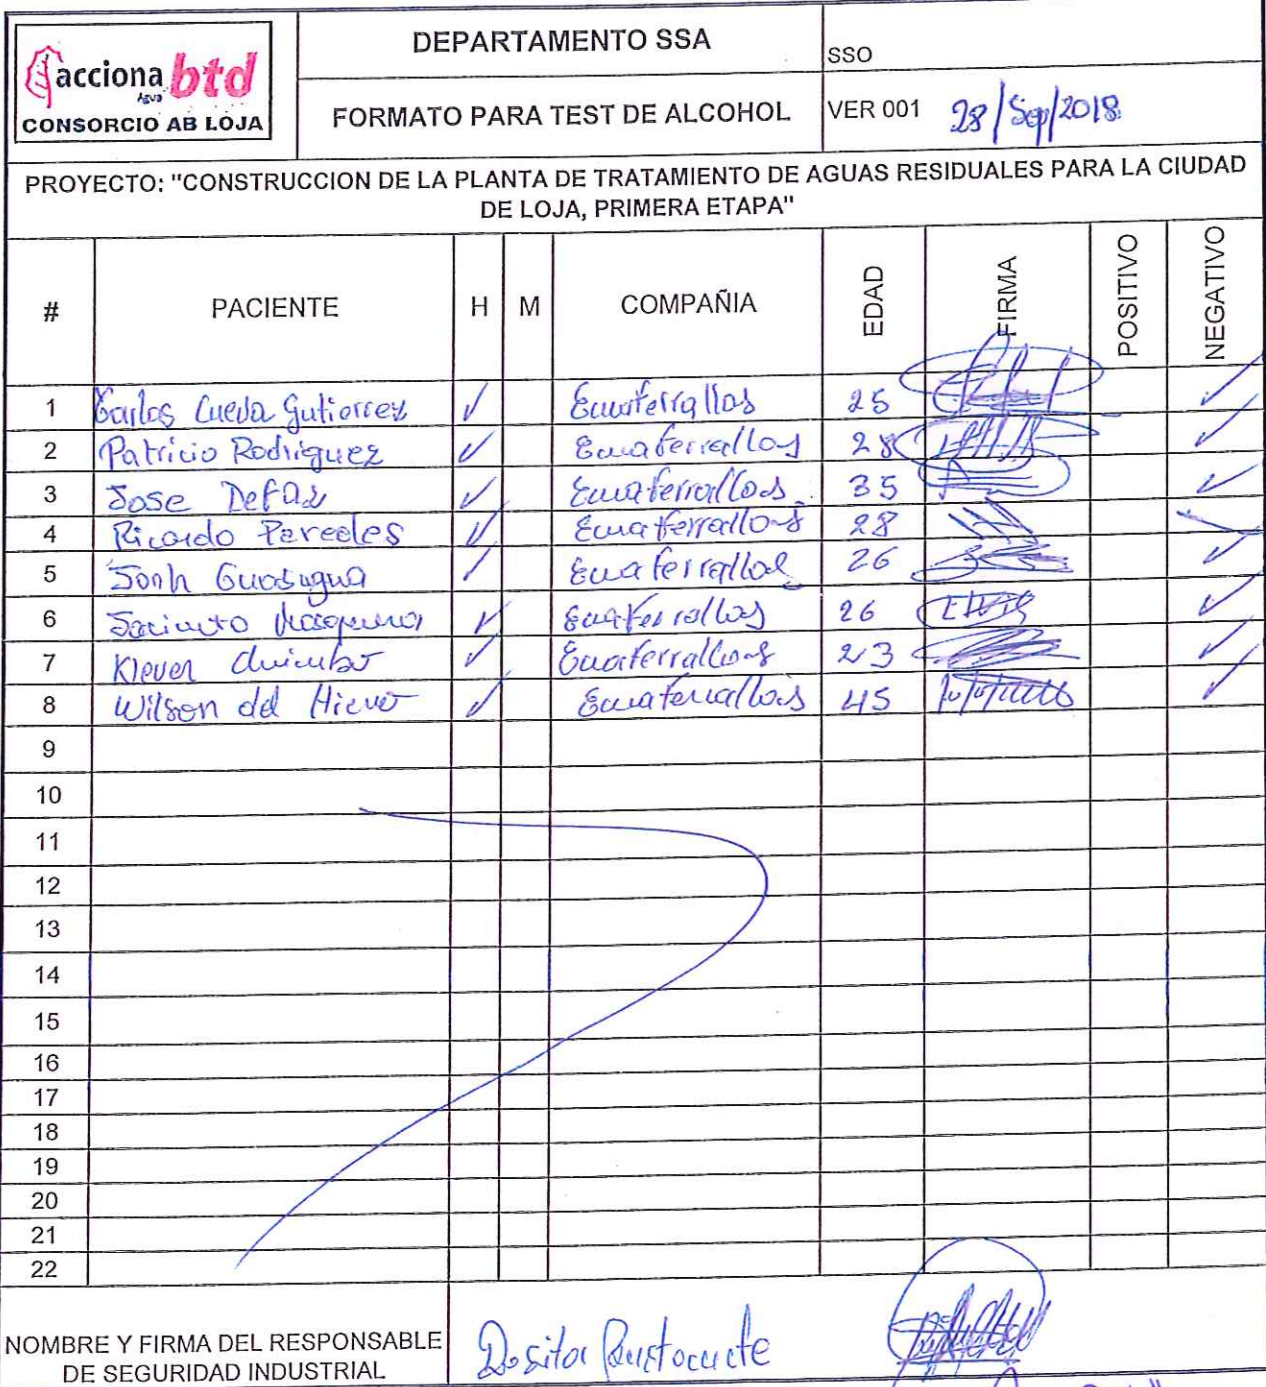 acciona btd
Agua
CONSORCIO AB LOJA
DEPARTAMENTO SSA
SSO
FORMATO PARA TEST DE ALCOHOL
VER 001 28/Sep/2018
PROYECTO: "CONSTRUCCION DE LA PLANTA DE TRATAMIENTO DE AGUAS RESIDUALES PARA LA CIUDAD
DE LOJA, PRIMERA ETAPA"
# PACIENTE H M COMPAÑIA EDAD FIRMA POSITIVO NEGATIVO
1 Carlos Cueva Gutierrez ✓ Ecuaferrallas 25 ✓
2 Patricio Rodriguez ✓ Ecuaferrallas 28 ✓
3 Jose Defaz ✓ Ecuaferrallas 35 ✓
4 Ricardo Paredes ✓ Ecuaferrallas 28 ✓
5 Jonh ✓ Ecuaferrallas 26 ✓
6 Jacinto ✓ Ecuaferrallas 26 ✓
7 Klever ✓ Ecuaferrallas 23 ✓
8 Wilson del Hierro ✓ Ecuaferrallas 45 ✓
9
10
11
12
13
14
15
16
17
18
19
20
21
22
NOMBRE Y FIRMA DEL RESPONSABLE
DE SEGURIDAD INDUSTRIAL